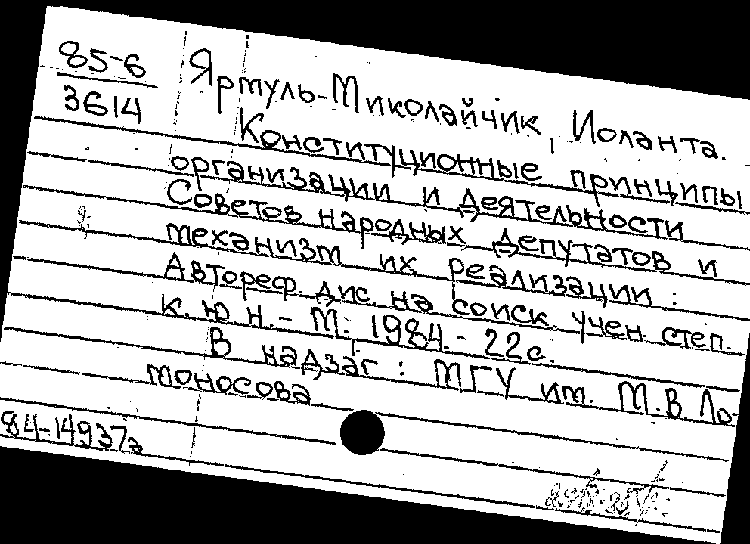 85-6
3614
Яртуль-Миколайчик, Иоланта.
Конституционные принципы
организации и деятельности
Советов народных депутатов и
механизм их реализации :
Автореф. дис. на соиск. учен. степ.
к. ю. н. - М., 1984. - 22с.
В надзаг : МГУ им. М.В. Ло-
моносова
84-14937а